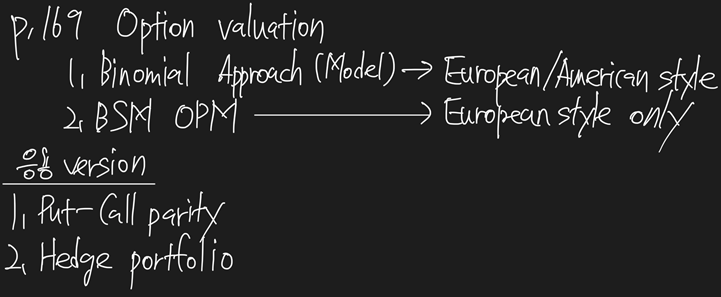 p.169 Option valuation
1. Binomial Approach (Model) → European/American style
2. BSM OPM → European style only
응용 version
1. Put-Call parity
2. Hedge portfolio